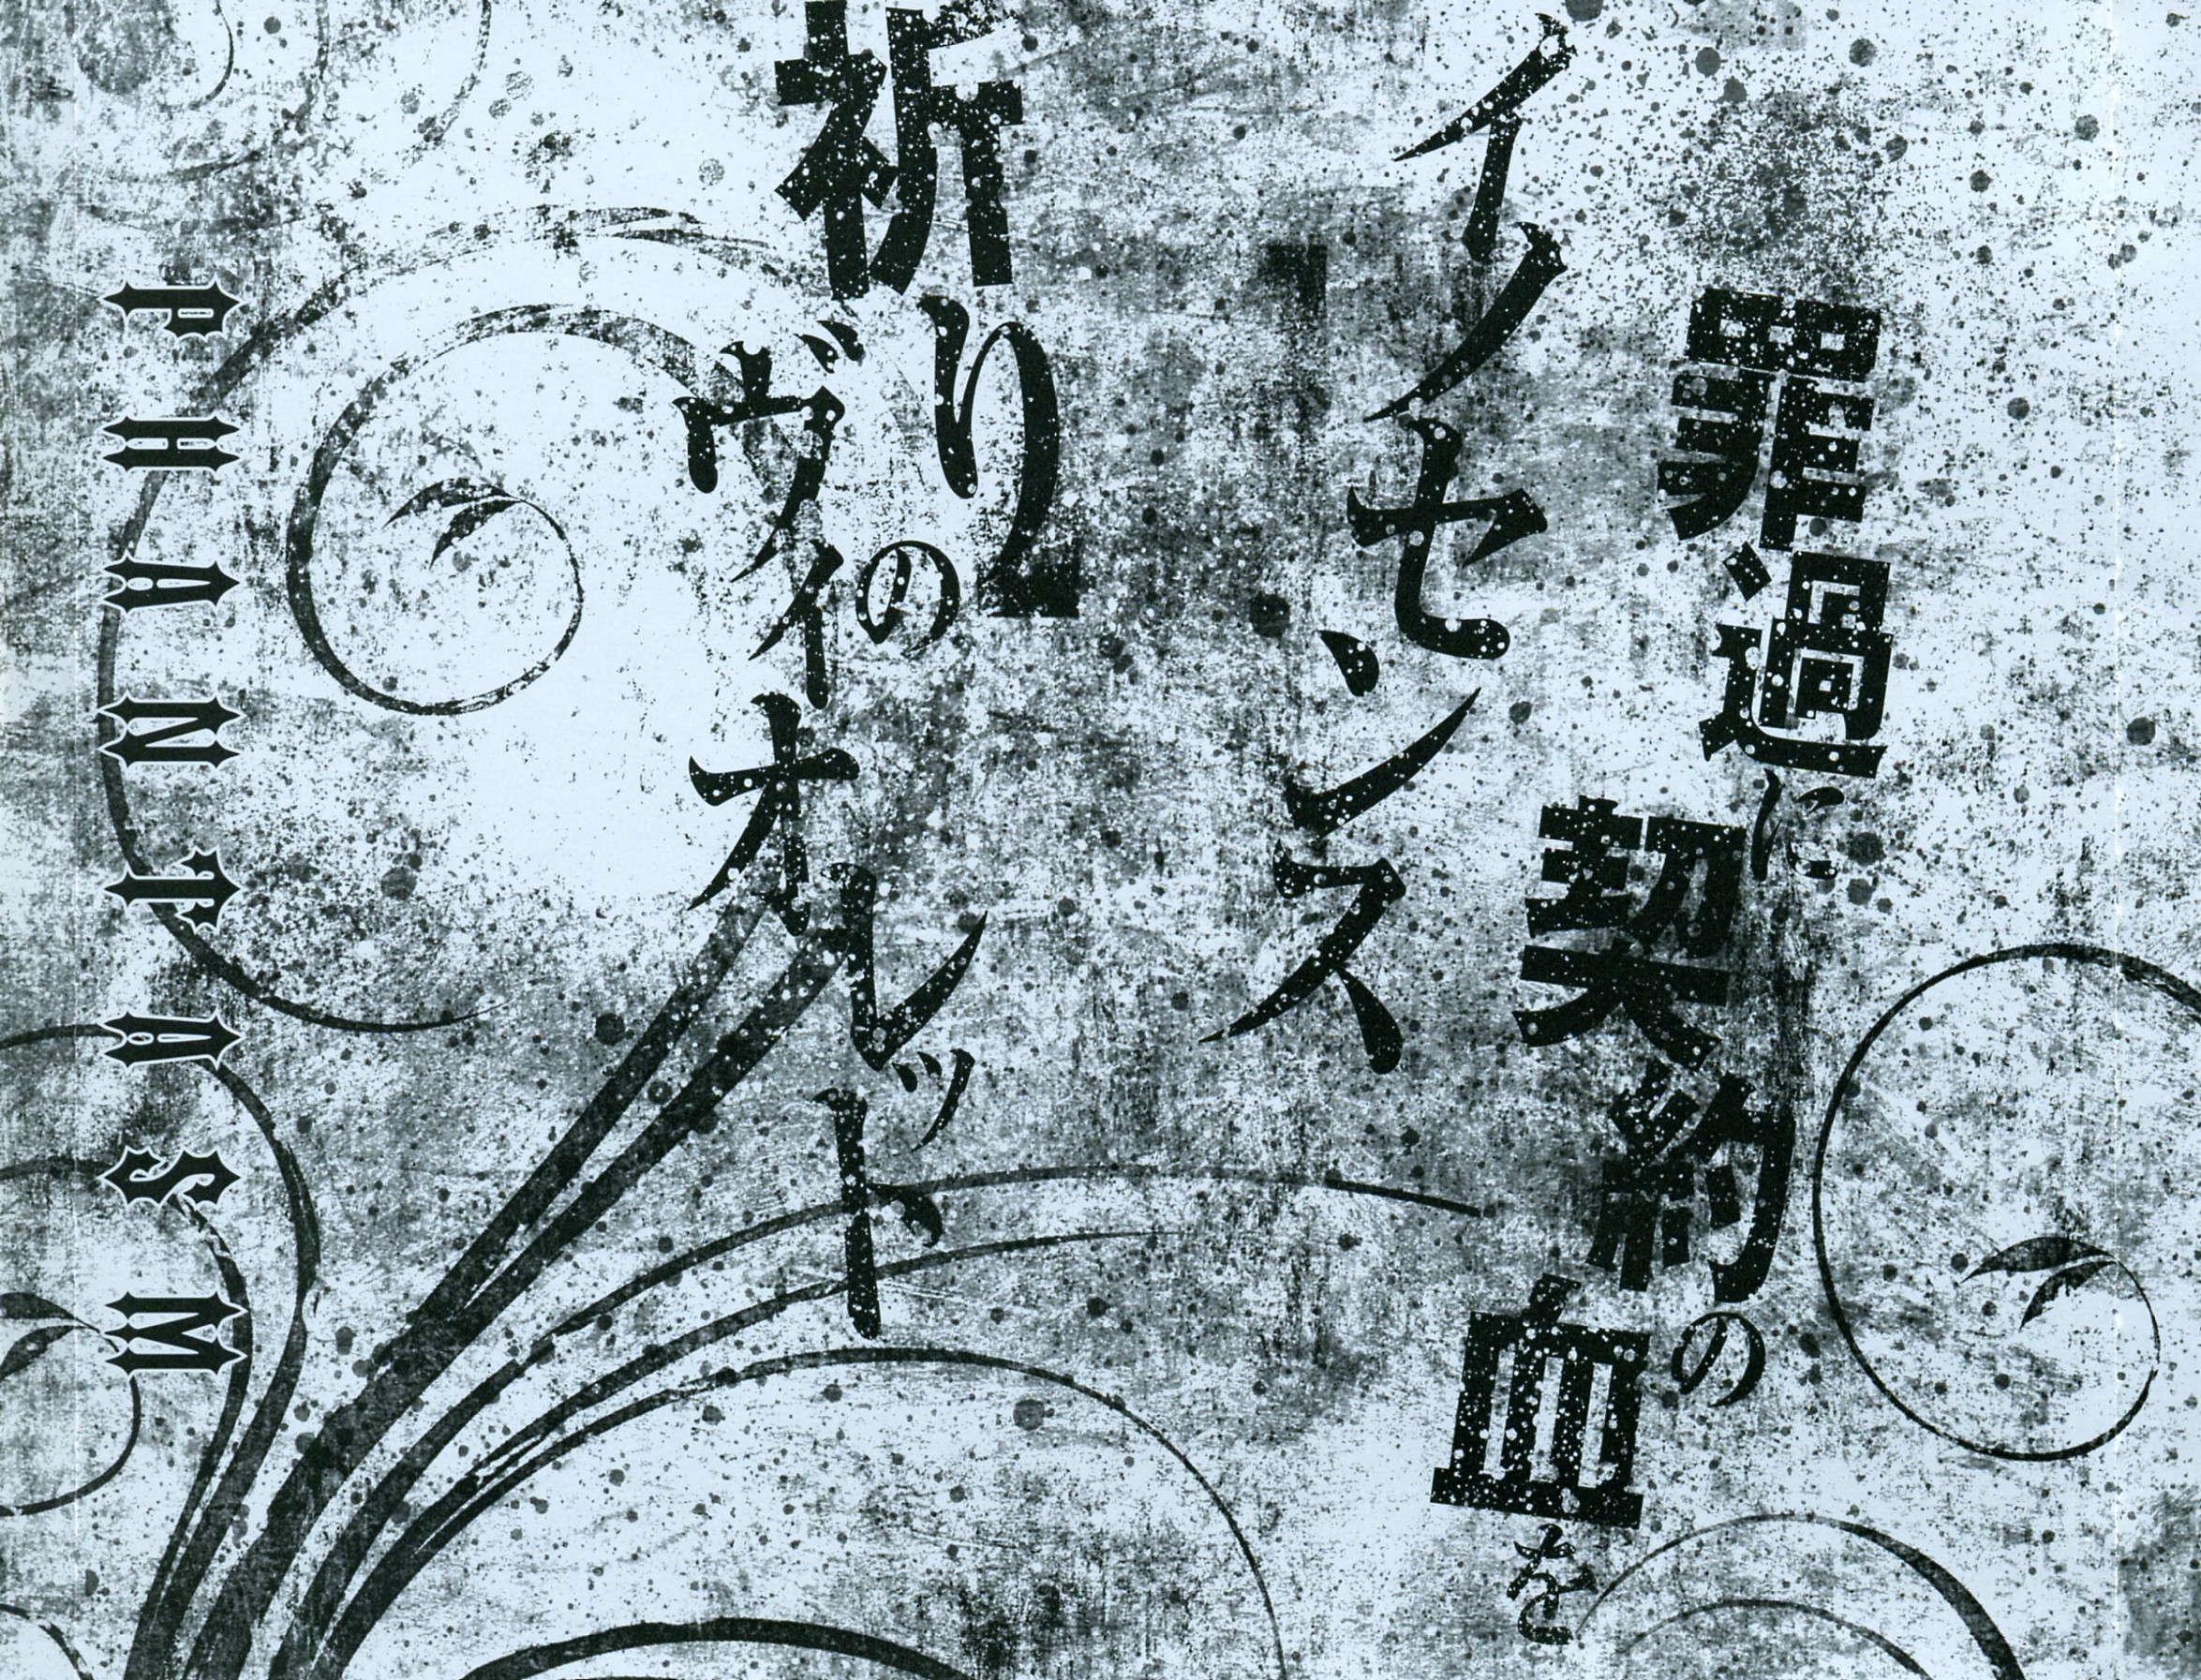 罪過に
契約の
血を
イノセンス
祈りの
ヴィオレット
PHANTASM